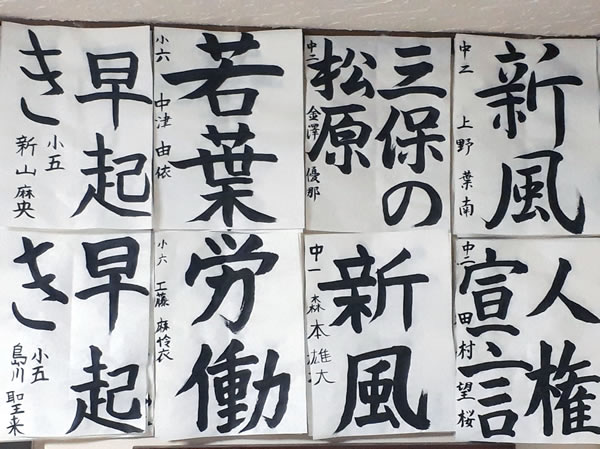 新風
中二 上野 葉南
三保の
松原
中二 金澤 優那
若葉
小六 中津 由依
早起
き
小五
新山 麻央
人権
宣言
中二 田村 望桜
新風
中一 森本 雄大
労働
小六 工藤 麻怜衣
早起
き
小五
聖来